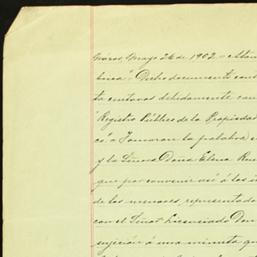 Mayo 26 de 1902. - Atan
Dicho documento cons
debidamente can
"Registro Público de la Propiedad
tomaran la palabra e
y la Señora Doña Elena Rue
que por convenir así á los in
de los menores, representado
con el Señor Licenciado Don
sujeción á una minuta qu